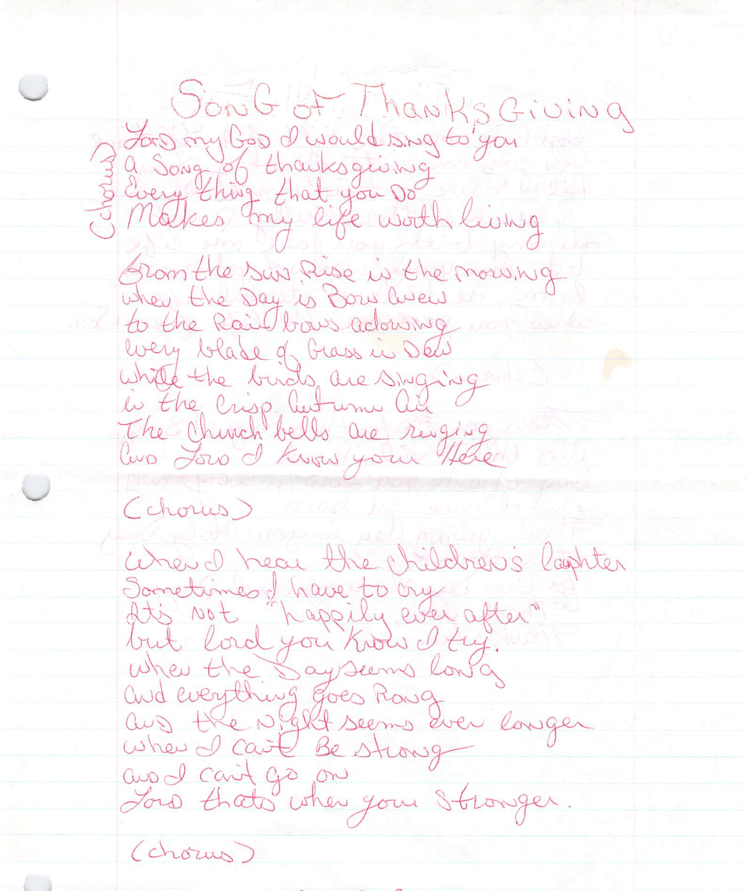 SonG of ThanksGiving
(chorus)
Lord my God I would sing to you
a Song of thanksgiving
Every thing that you Do
Makes my life worth living
from the Sun Rise in the morning
when the Day is Born anew
to the Rainbows adorning
every blade of Grass in Dew
while the birds are singing
in the crisp Autumn Air
The Church bells are ringing
and Lord I know your Here
(chorus)
when I hear the children's laphter
Sometimes I have to cry
It's not "happily ever after"
but lord you know I try.
when the Day seems long
and everything goes Rong
and the Night seems even longer
when I can't Be strong
and I can't go on
Lord thats when your Stronger.
(chorus)